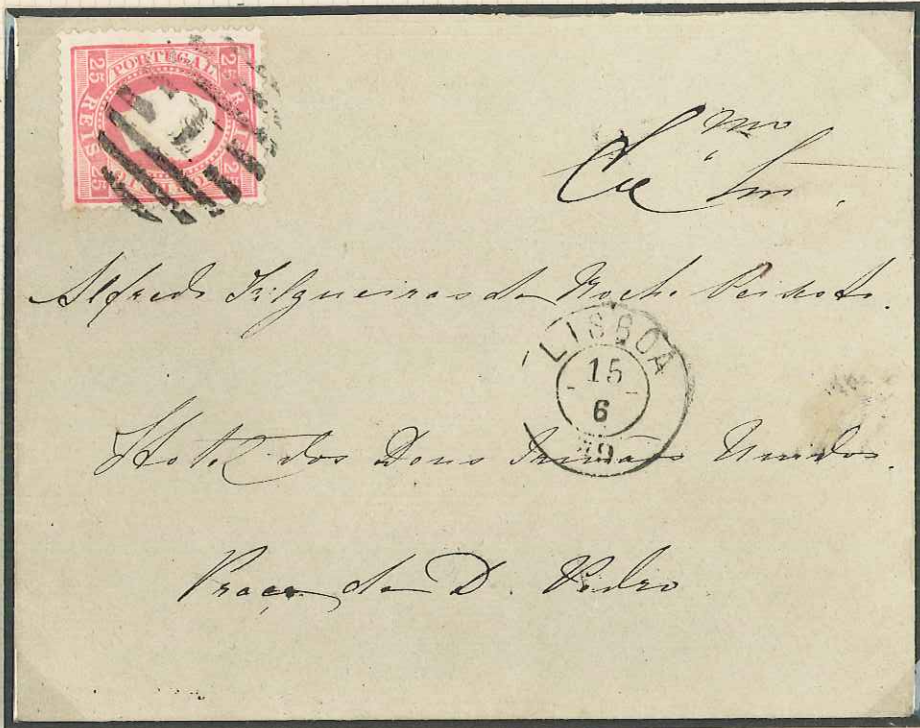 PORTUGAL
25 REIS 25
25 REIS 25
Snr.
Alfredo Filgueiras da Rocha Peixoto.
LISBOA
15
6
Hotel dos Dous Irmãos Unidos.
Praça de D. Pedro